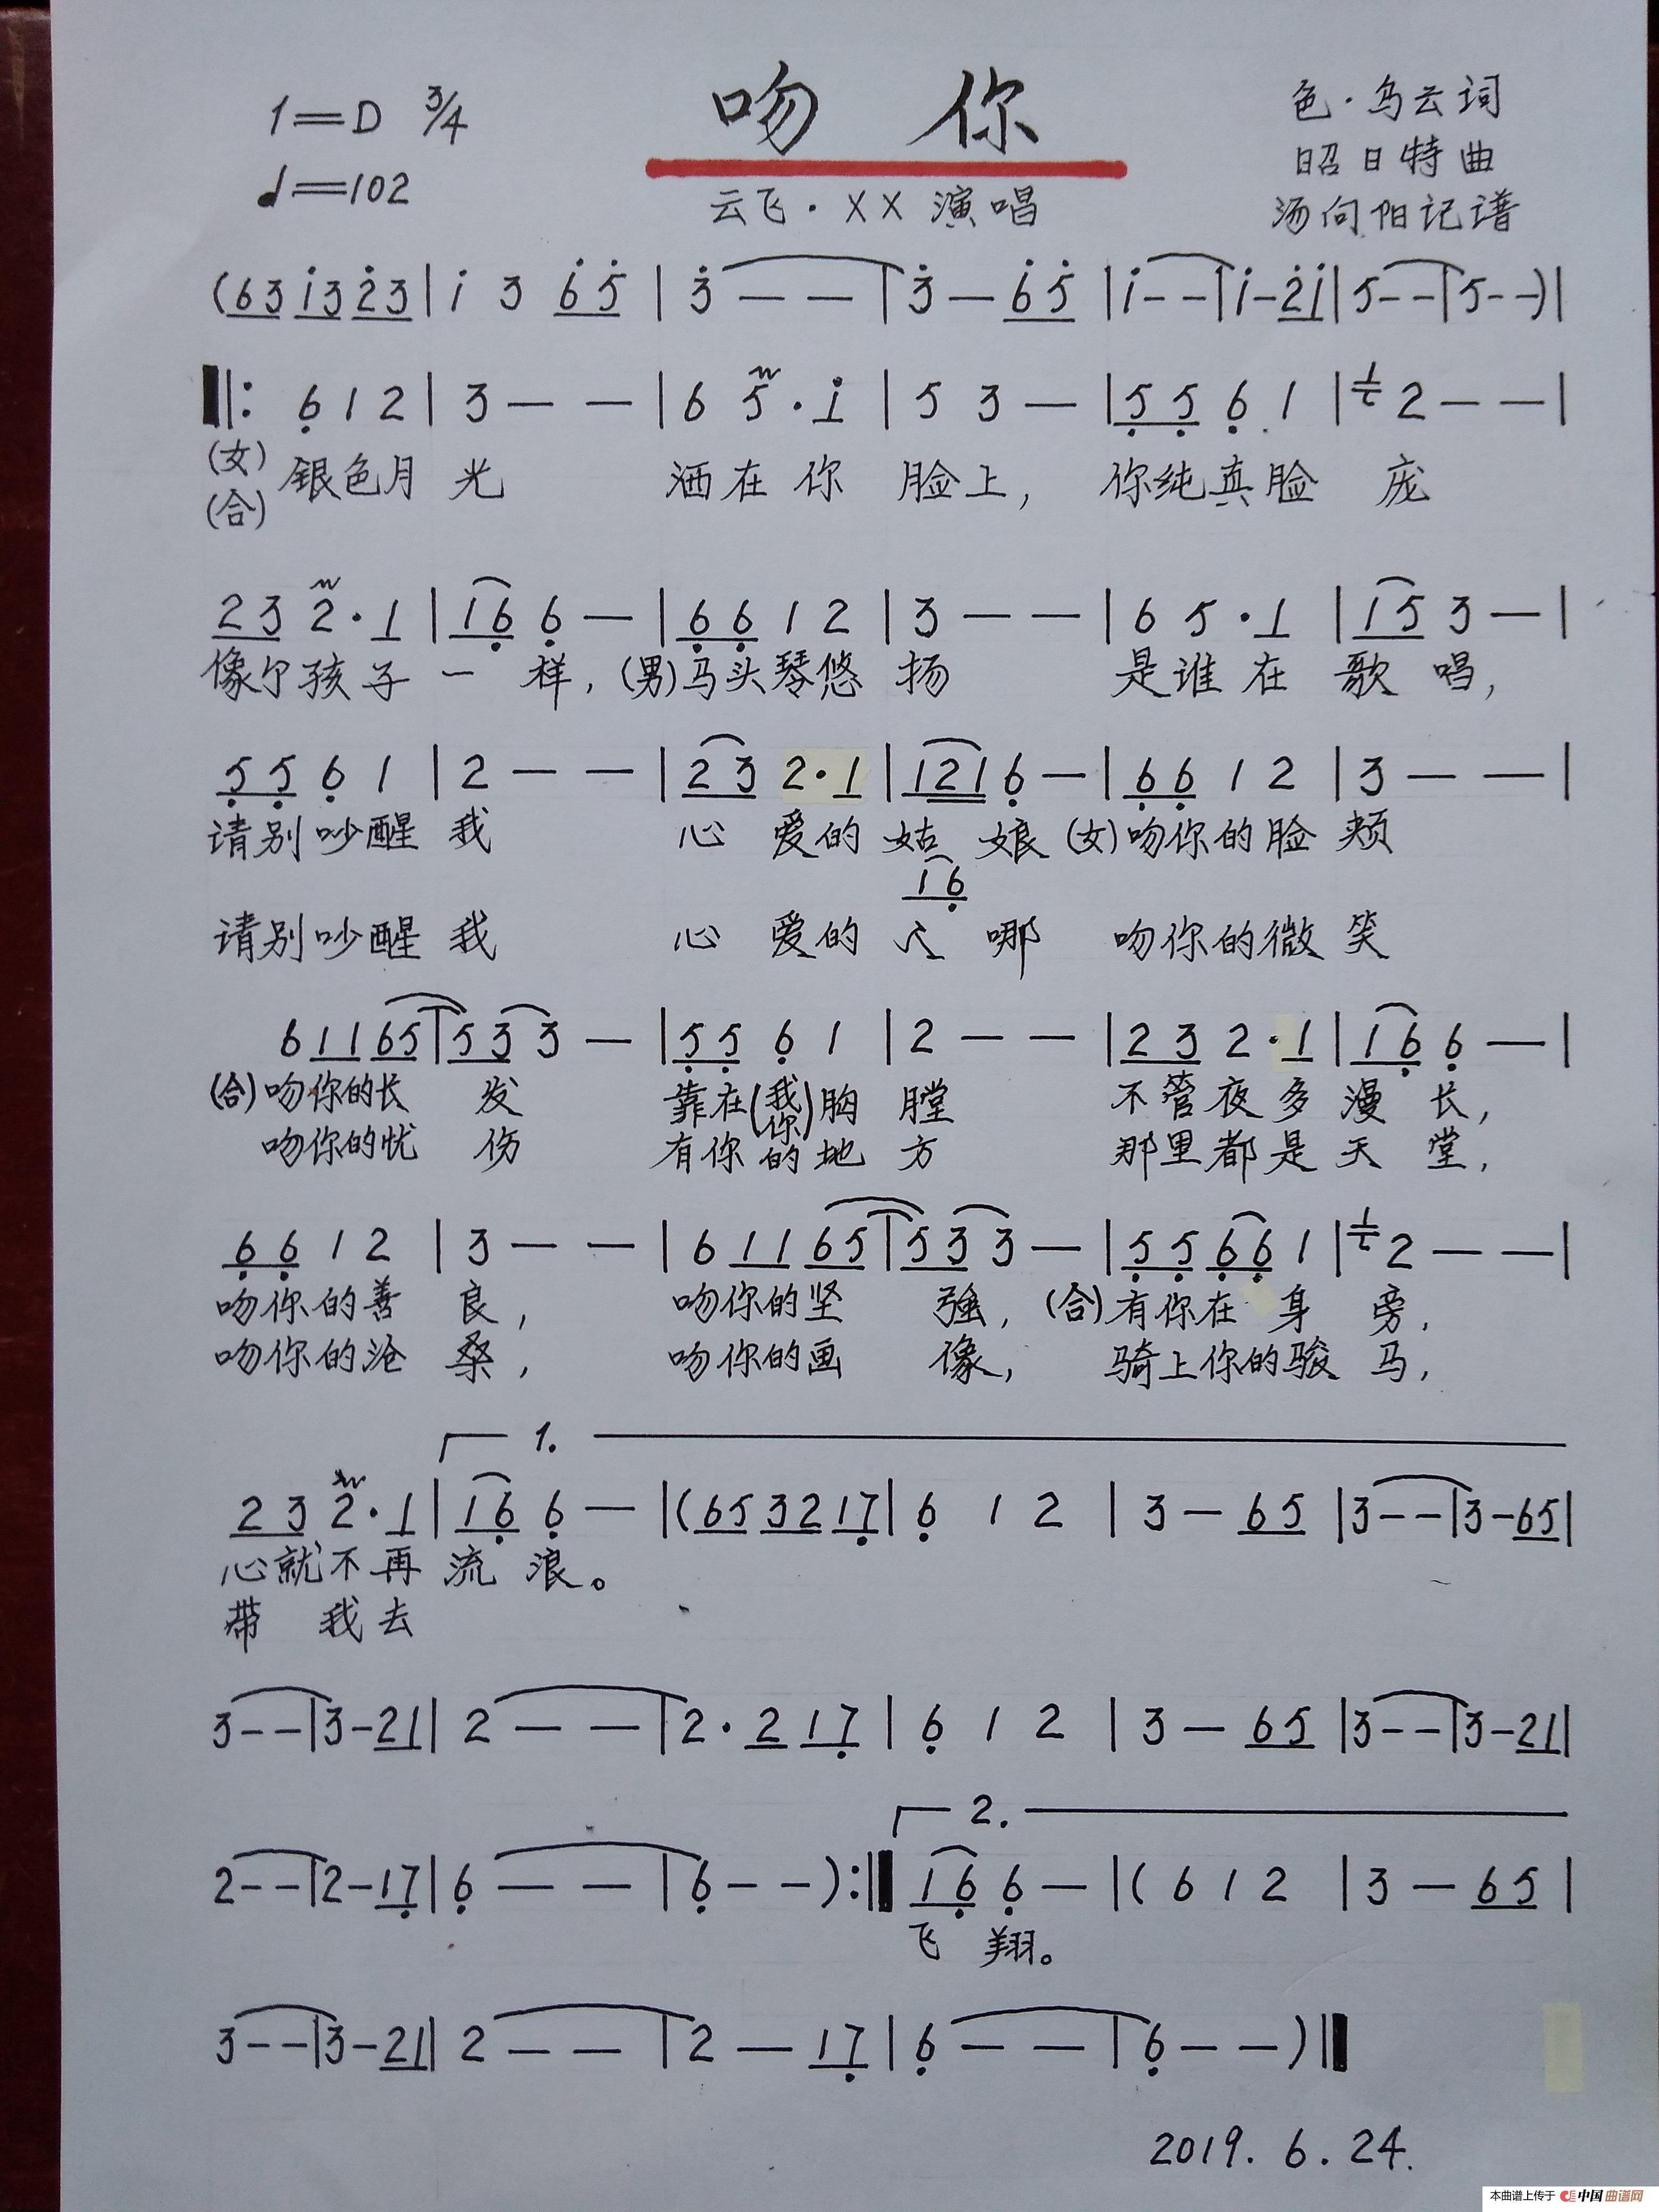 1=D 3/4
吻 你
色·乌云词
♩=102
云飞·XX 演唱
昭日特曲
汤向阳记谱
(63 i3 2̇3 | i 3 6̇5̇ | 3̇ — — | 3̇ — 6̇5̇ | i - - | i - 2̇i | 5 - - | 5 - -) |
‖: 6̣ 1 2 | 3 — — | 6 5 · i | 5 3 — | 5̣ 5̣ 6̣ 1 | 2 — — |
(女) 银色月 光 洒在你 脸上, 你纯真脸 庞
(合)
2 3 2 · 1 | 1 6̣ 6̣ — | 6̣ 6̣ 1 2 | 3 — — | 6 5 · 1 | 1 5 3 — |
像个孩子 一 样, (男)马头琴悠 扬 是谁在 歌 唱,
5̣ 5̣ 6̣ 1 | 2 — — | 2 3 2 · 1 | 1 2 1 6̣ — | 6̣ 6̣ 1 2 | 3 — — |
请别吵醒 我 心 爱的 姑 娘 (女)吻你的脸 颊
1 6̣
请别吵醒 我 心 爱的 人 哪 吻你的微 笑
6 1 1 6 5 | 5 3 3 — | 5̣ 5̣ 6̣ 1 | 2 — — | 2 3 2 · 1 | 1 6̣ 6̣ — |
(合) 吻你的长 发 靠在(我你)胸 膛 不管夜多 漫 长,
吻你的忧 伤 有你的地 方 那里都是 天 堂,
6̣ 6̣ 1 2 | 3 — — | 6 1 1 6 5 | 5 3 3 — | 5̣ 5̣ 6̣ 6̣ 1 | 2 — — |
吻你的善 良, 吻你的坚 强, (合)有你在 身 旁,
吻你的沧 桑, 吻你的画 像, 骑上你的骏 马,
1.
2 3 2 · 1 | 1 6̣ 6̣ — | (65 32 17̣ | 6̣ 1 2 | 3 — 65 | 3 - - | 3 - 65 |
心就不再 流 浪。
带 我去
3 - - | 3 - 21 | 2 — — | 2 · 2 17̣ | 6̣ 1 2 | 3 — 65 | 3 - - | 3 - 21 |
2.
2 - - | 2 - 17̣ | 6̣ — — | 6̣ - -) :‖ 1 6̣ 6̣ — | ( 6 1 2 | 3 — 65 |
飞 翔。
3 - - | 3 - 21 | 2 — — | 2 — 17̣ | 6̣ — — | 6̣ - - ) ‖
2019. 6. 24.
本曲谱上传于 中国曲谱网